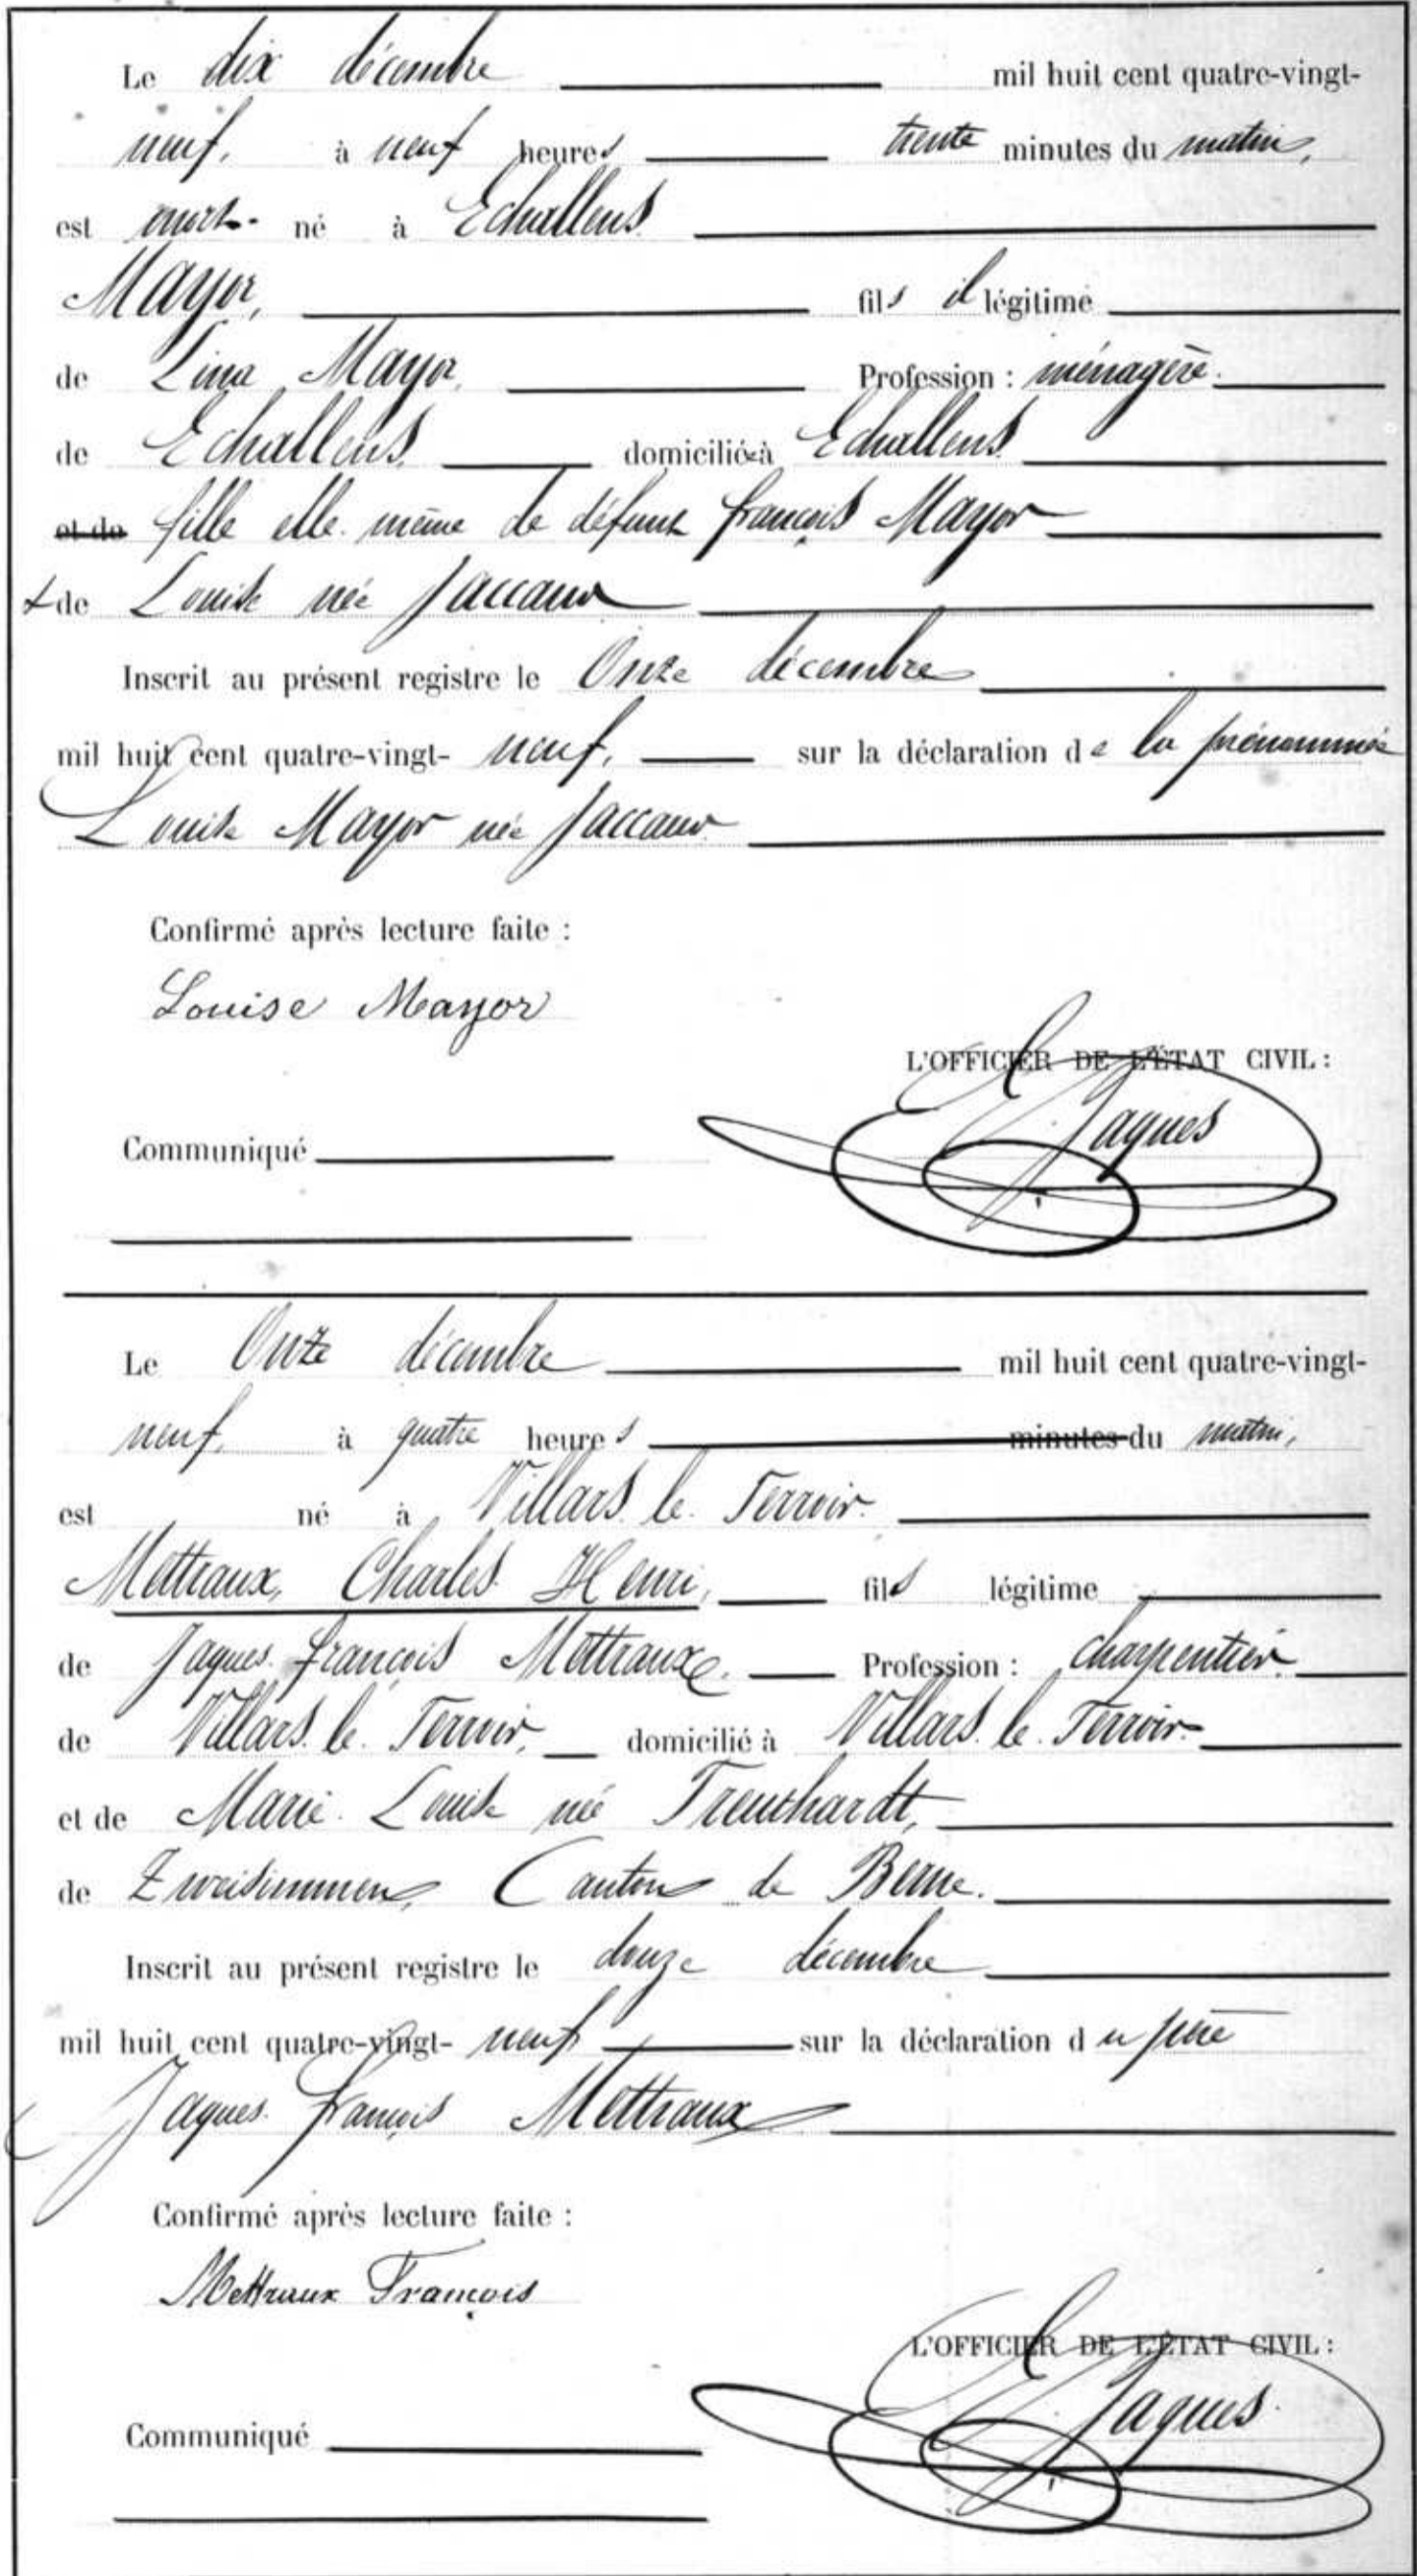 Le dix décembre mil huit cent quatre-vingt-
neuf, à neuf heures trente minutes du matin,
est mort-né à Echallens
Mayor, fils illégitime
de Lina Mayor, Profession : ménagère.
de Echallens, domiciliée à Echallens
et de fille elle même de défunt françois Mayor
& de Louise née Jaccaud
Inscrit au présent registre le Onze décembre
mil huit cent quatre-vingt- neuf, sur la déclaration de la prénommée
Louise Mayor née Jaccaud
Confirmé après lecture faite :
Louise Mayor
L'OFFICIER DE L'ÉTAT CIVIL :
Jaques
Communiqué
Le Onze décembre mil huit cent quatre-vingt-
neuf, à quatre heures minutes du matin,
est né à Villars le Terroir.
Mettraux, Charles Henri, fils légitime
de Jaques françois Mettraux. Profession : charpentier.
de Villars le Terroir, domicilié à Villars le Terroir
et de Marie Louise née Treuthardt,
de Zweisimmen, Canton de Berne.
Inscrit au présent registre le douze décembre
mil huit cent quatre-vingt- neuf sur la déclaration du père
Jaques françois Mettraux
Confirmé après lecture faite :
Mettraux François
L'OFFICIER DE L'ÉTAT CIVIL :
Jaques
Communiqué